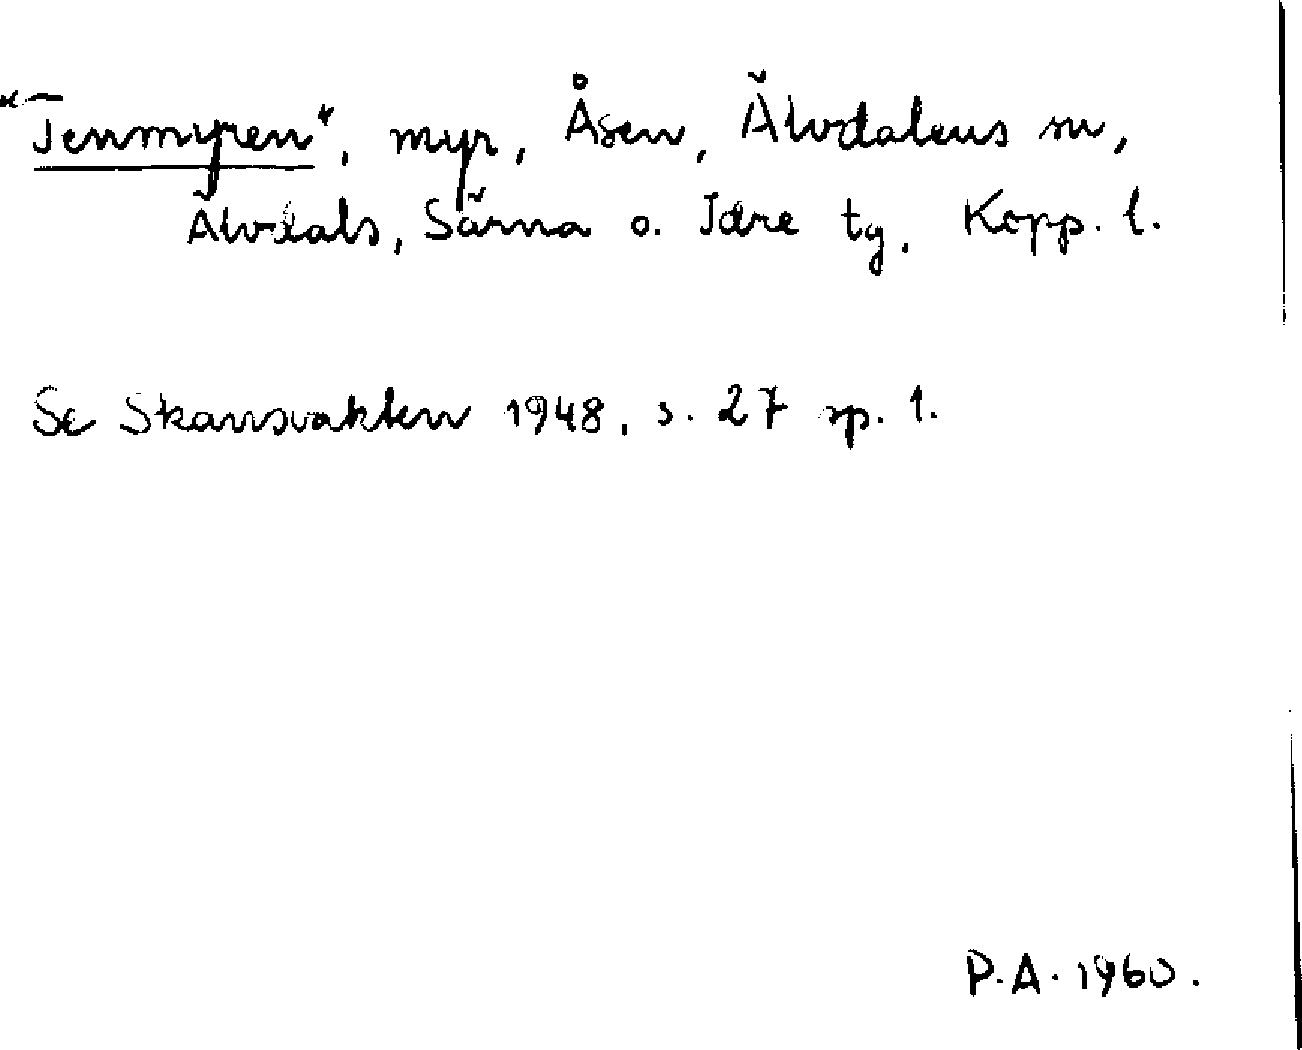 "Tenmyren", myr, Åsen, Älvdalens sn,
Älvdals, Särna o. Idre tg, Kopp. l.
Se Skansvakten 1948, s. 27 sp. 1.
P.A. 1960.